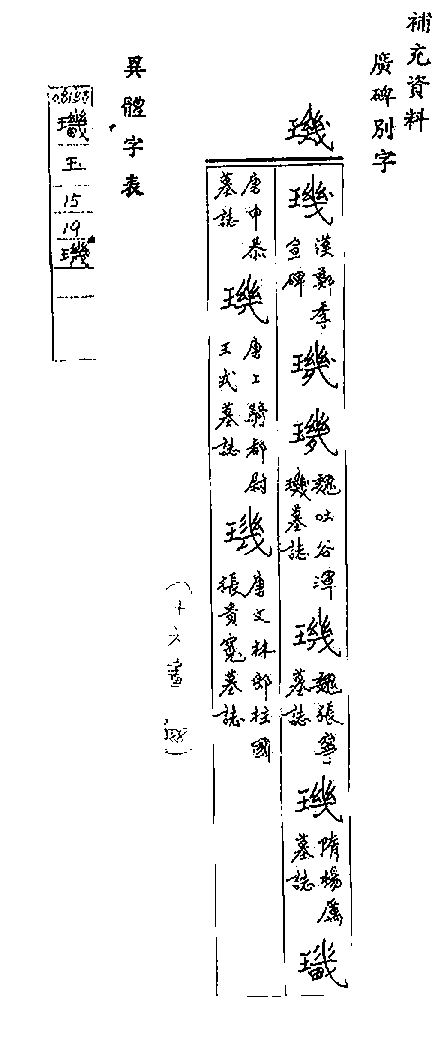 補充資料
廣碑別字
璣
璣 漢鄭季宣碑 璣 璣 魏吐谷渾璣墓誌 璣 魏張寧墓誌 璣 隋楊厲墓誌
唐申恭墓誌 璣 唐上騎都尉王武墓誌 璣 唐文林郎柱國張貴寬墓誌
異體字表
玉
15
19
璣